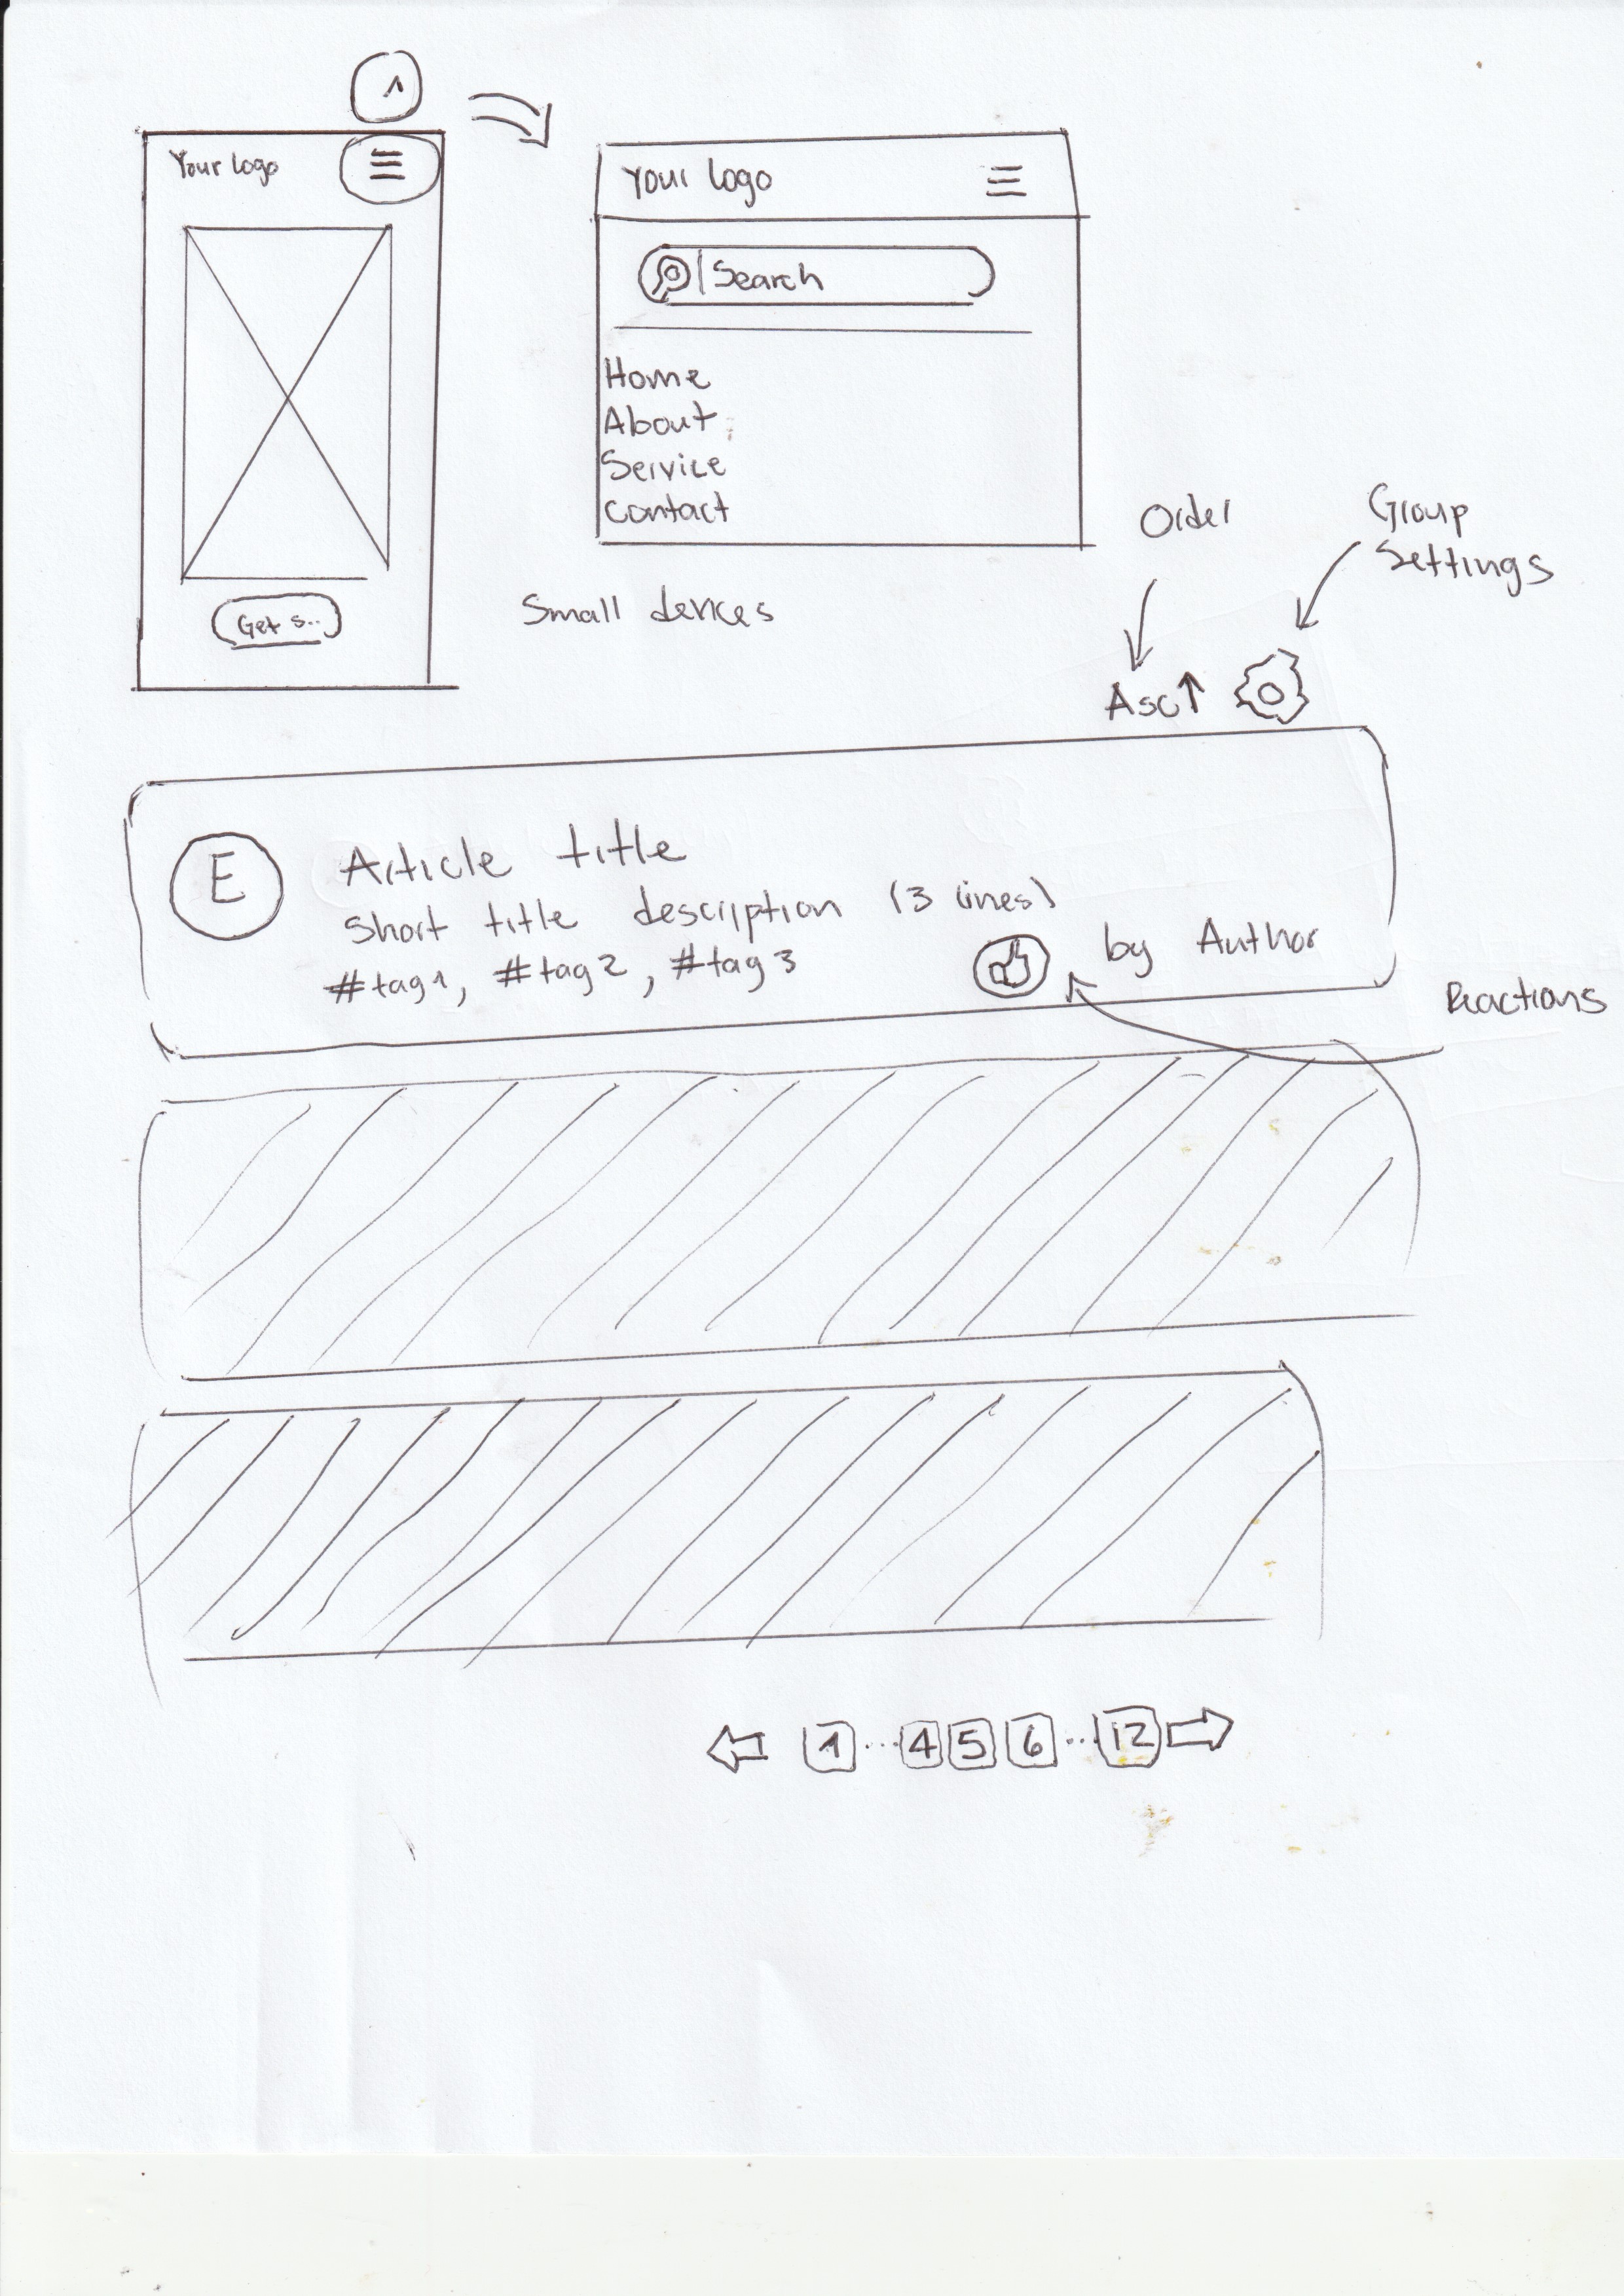 1
Your logo
Get s..
Your logo
Search
Home
About
Service
Contact
Small devices
Order
Group
Settings
Asc↑
E
Article title
Short title description (3 lines)
#tag1, #tag2, #tag3
by Author
Reactions
1 ... 4 5 6 ... 12